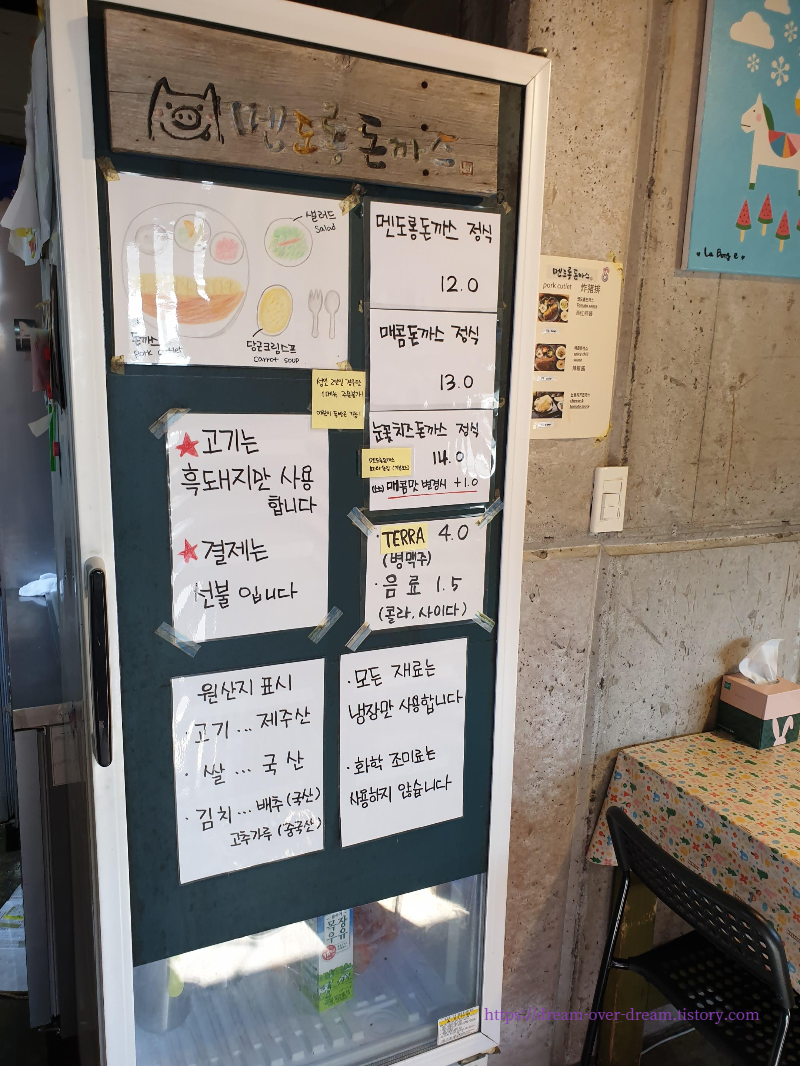 멘도롱돈까스
샐러드
Salad
돈까스
pork cutlet
당근크림스프
carrot soup
멘도롱돈까스 정식
12.0
매콤돈까스 정식
13.0
눈꽃치즈돈까스 정식
14.0
매콤맛 변경시 +1.0
· TERRA 4.0
(병맥주)
· 음료 1.5
(콜라, 사이다)
★고기는
흑돼지만 사용
합니다
★결제는
선불 입니다
원산지 표시
· 고기 ... 제주산
· 쌀 ... 국산
· 김치 ... 배추 (국산)
고추가루 (중국산)
· 모든 재료는
냉장만 사용합니다
· 화학 조미료는
사용하지 않습니다
멘도롱돈까스
pork cutlet 炸猪排
목장
우유
https://dream-over-dream.tistory.com